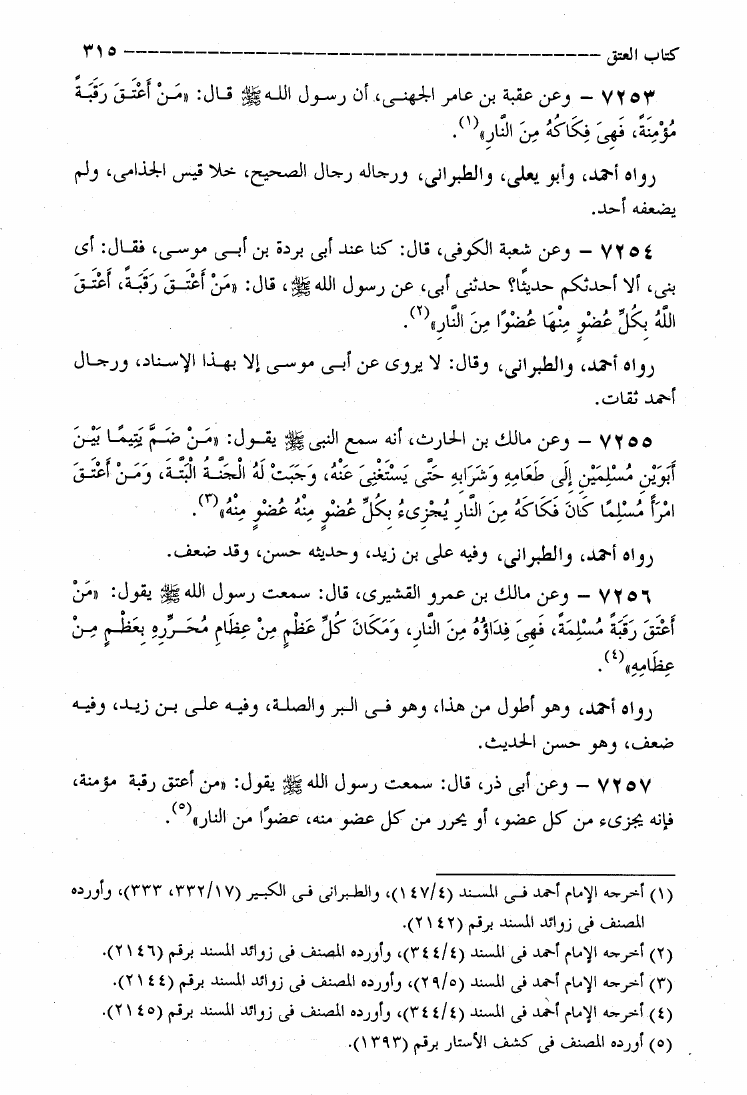 كتاب العتق ---------------------------------------- ٣١٥
٧٢٥٣ – وعن عقبة بن عامر الجهنى، أن رسول الله ﷺ قال: «مَنْ أَعْتَقَ رَقَبَةً
مُؤْمِنَةً، فَهِىَ فِكَاكُهُ مِنَ النَّارِ»(١).
رواه أحمد، وأبو يعلى، والطبرانى، ورجاله رجال الصحيح، خلا قيس الجذامى، ولم
يضعفه أحد.
٧٢٥٤ – وعن شعبة الكوفى، قال: كنا عند أبى بردة بن أبى موسى، فقال: أى
بنى، ألا أحدثكم حديثًا؟ حدثنى أبى، عن رسول الله ﷺ، قال: «مَنْ أَعْتَقَ رَقَبَةً، أَعْتَقَ
اللَّهُ بِكُلِّ عُضْوٍ مِنْهَا عُضْوًا مِنَ النَّارِ»(٢).
رواه أحمد، والطبرانى، وقال: لا يروى عن أبى موسى إلا بهذا الإسناد، ورجال
أحمد ثقات.
٧٢٥٥ – وعن مالك بن الحارث، أنه سمع النبى ﷺ يقول: «مَنْ ضَمَّ يَتِيمًا بَيْنَ
أَبَوَيْنِ مُسْلِمَيْنِ إِلَى طَعَامِهِ وَشَرَابِهِ حَتَّى يَسْتَغْنِىَ عَنْهُ، وَجَبَتْ لَهُ الْجَنَّةُ الْبَتَّةَ، وَمَنْ أَعْتَقَ
امْرَأً مُسْلِمًا كَانَ فَكَاكَهُ مِنَ النَّارِ يُجْزِىءُ بِكُلِّ عُضْوٍ مِنْهُ عُضْوٍ مِنْهُ»(٣).
رواه أحمد، والطبرانى، وفيه على بن زيد، وحديثه حسن، وقد ضعف.
٧٢٥٦ – وعن مالك بن عمرو القشيرى، قال: سمعت رسول الله ﷺ يقول: «مَنْ
أَعْتَقَ رَقَبَةً مُسْلِمَةً، فَهِىَ فِدَاؤُهُ مِنَ النَّارِ، وَمَكَانَ كُلِّ عَظْمٍ مِنْ عِظَامِ مُحَرِّرِهِ بِعَظْمٍ مِنْ
عِظَامِهِ»(٤).
رواه أحمد، وهو أطول من هذا، وهو فى البر والصلة، وفيه على بن زيد، وفيه
ضعف، وهو حسن الحديث.
٧٢٥٧ – وعن أبى ذر، قال: سمعت رسول الله ﷺ يقول: «من أعتق رقبة مؤمنة،
فإنه يجزىء من كل عضو، أو يحرر من كل عضو منه، عضوًا من النار»(٥).
(١) أخرجه الإمام أحمد فى المسند (١٤٧/٤)، والطبرانى فى الكبير (٣٣٢/١٧، ٣٣٣)، وأورده
المصنف فى زوائد المسند برقم (٢١٤٢).
(٢) أخرجه الإمام أحمد فى المسند (٣٤٤/٤)، وأورده المصنف فى زوائد المسند برقم (٢١٤٦).
(٣) أخرجه الإمام أحمد فى المسند (٢٩/٥)، وأورده المصنف فى زوائد المسند برقم (٢١٤٤).
(٤) أخرجه الإمام أحمد فى المسند (٣٤٤/٤)، وأورده المصنف فى زوائد المسند برقم (٢١٤٥).
(٥) أورده المصنف فى كشف الأستار برقم (١٣٩٣).